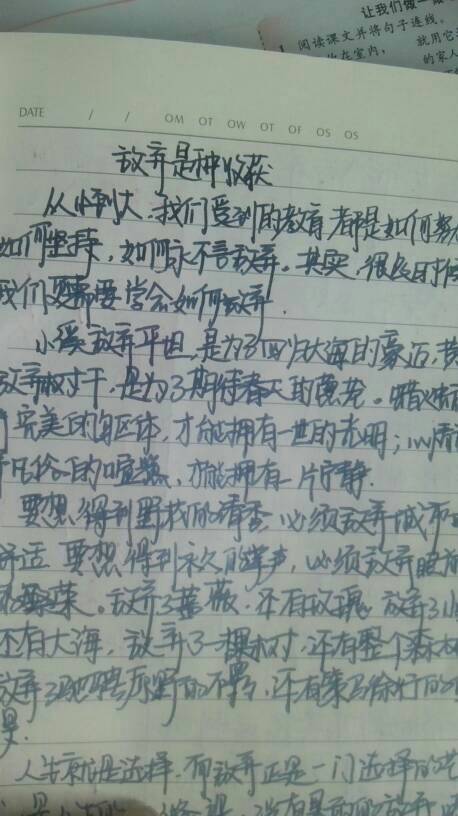 让我们做一做
阅读课文并将句子连线。
在室内， 就用它
的家人
DATE / / OM OT OW OT OF OS OS
放弃是种收获
从小到大，我们受到的教育都是如何努
如何坚持，如何永不言放弃。其实，很多时候
我们更需要学会如何放弃.
小溪放弃平坦，是为了回归大海的豪迈；黄
放弃树干，是为了期待春天的。蜡烛
完美的躯体，才能拥有一世的光明；心情
凡俗的喧嚣，才能拥有一片宁静.
要想得到野花的清香，必须放弃城市
舒适 要想得到永久的掌声，必须放弃眼前
虚荣。放弃了蔷薇，还有玫瑰 放弃了小
还有大海，放弃了一棵树，还有整个森林
放弃了驰骋原野的不羁，还有策马徐行的
人生就是选择，而放弃正是一门选择的艺
没有果敢的放弃